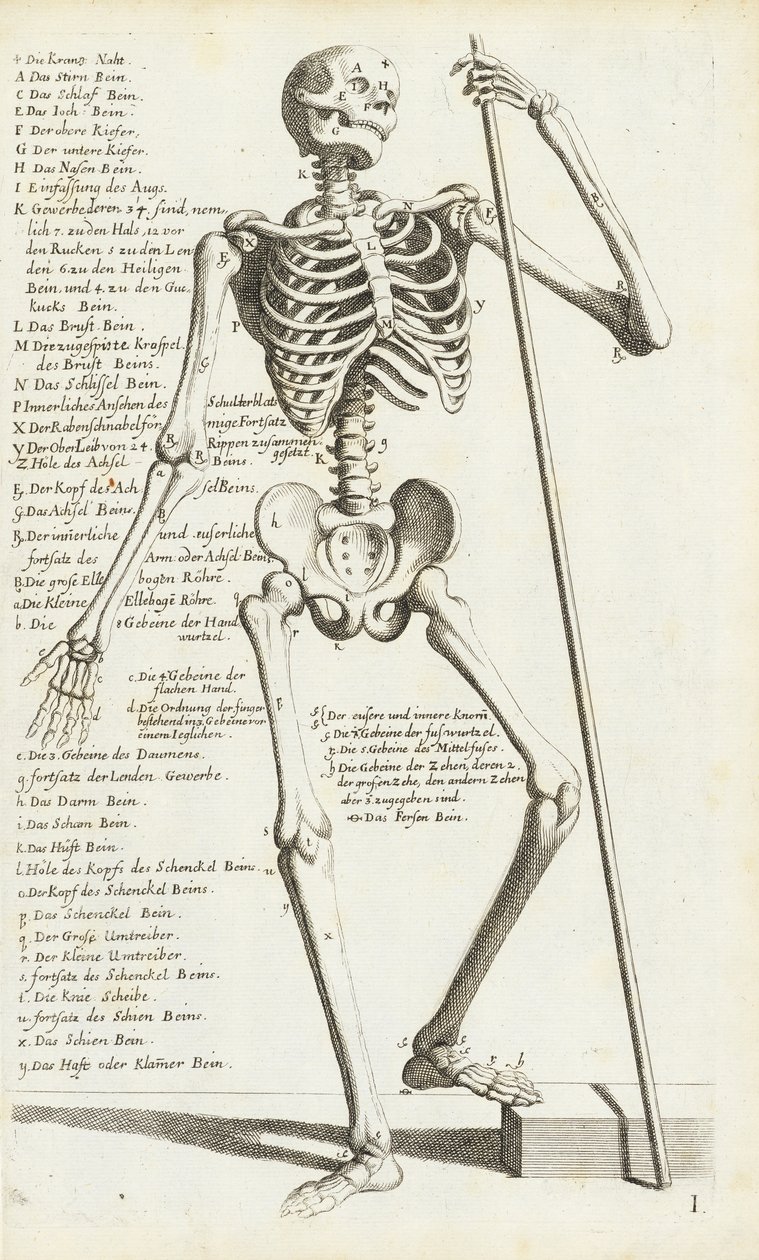 + Die Krantz Naht.
A Das Stirn Bein.
C Das Schlaf Bein.
E Das Ioch Bein.
F Der obere Kiefer.
G Der untere Kiefer.
H Das Nasen Bein.
I Einfassung des Augs.
K Gewerbe deren 34. sind, nem,
lich 7. zu den Hals, 12 vor
den Rucken 5 zu den Len
den 6. zu den Heiligen
Bein, und 4. zu den Guc,
kucks Bein.
L Das Brust Bein.
M Die zugespitzte Kraspel
des Brust Beins.
N Das Schlissel Bein.
P Innerliches Ansehen des Schulterblats
X Der Rabenschnabelför mige Fortsatz
y Der Ober Leib von 24. Rippen zusammen
gesetzt.
Z Höle des Achsel Beins.
Der Kopf des Ach sel Beins.
Das Achsel Beins.
R. Der in̄erliche und euserliche
fortsatz des Arm oder Achsel Beins.
B. Die grose Elle bogen Röhre.
a Die Kleine Elleboge Röhre.
b. Die 8 Gebeine der Hand
wurtzel.
c. Die 4. Gebeine der
flachen Hand.
d. Die Ordnung der finger
bestehend in 3. Gebeine vor
einem Ieglichen.
e. Die 3. Gebeine des Daumens.
g. fortsatz der Lenden Gewerbe.
h. Das Darm Bein.
i. Das Scham Bein.
k. Das Hüft Bein.
l. Höle des Kopfs des Schenckel Beins.
o. Der Kopf des Schenckel Beins.
p. Das Schenckel Bein.
q. Der Grose Umtreiber.
r. Der Kleine Umtreiber.
s. fortsatz des Schenckel Beins.
t. Die Knie Scheibe.
u. fortsatz des Schien Beins.
x. Das Schien Bein.
y. Das Haft oder Klam̄er Bein.
Der eusere und innere Knorrn̄.
Die 7. Gebeine der fuswurtzel.
Die 5. Gebeine des Mittelfuses.
Die Gebeine der Zehen, deren 2.
der grosen Zehe, den andern Zehen
aber 3. zugegeben sind.
Das Fersen Bein.
I.